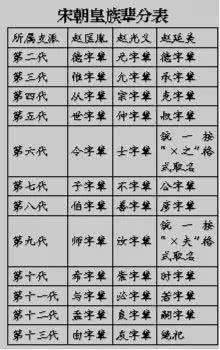 宋朝皇族辈分表
所属支派 赵匡胤 赵光义 赵廷美
第二代 德字辈 元字辈 德字辈
第三代 惟字辈 允字辈 承字辈
第四代 从字辈 宗字辈 克字辈
第五代 世字辈 仲字辈 叔字辈
第六代 令字辈 士字辈 统一按
“×之”格
式取名
第七代 子字辈 不字辈 公字辈
第八代 伯字辈 善字辈 彦字辈
第九代 师字辈 汝字辈 统一按
“×夫”格
式取名
第十代 希字辈 崇字辈 时字辈
第十一代 与字辈 必字辈 若字辈
第十二代 孟字辈 良字辈 嗣字辈
第十三代 由字辈 友字辈 绝祀